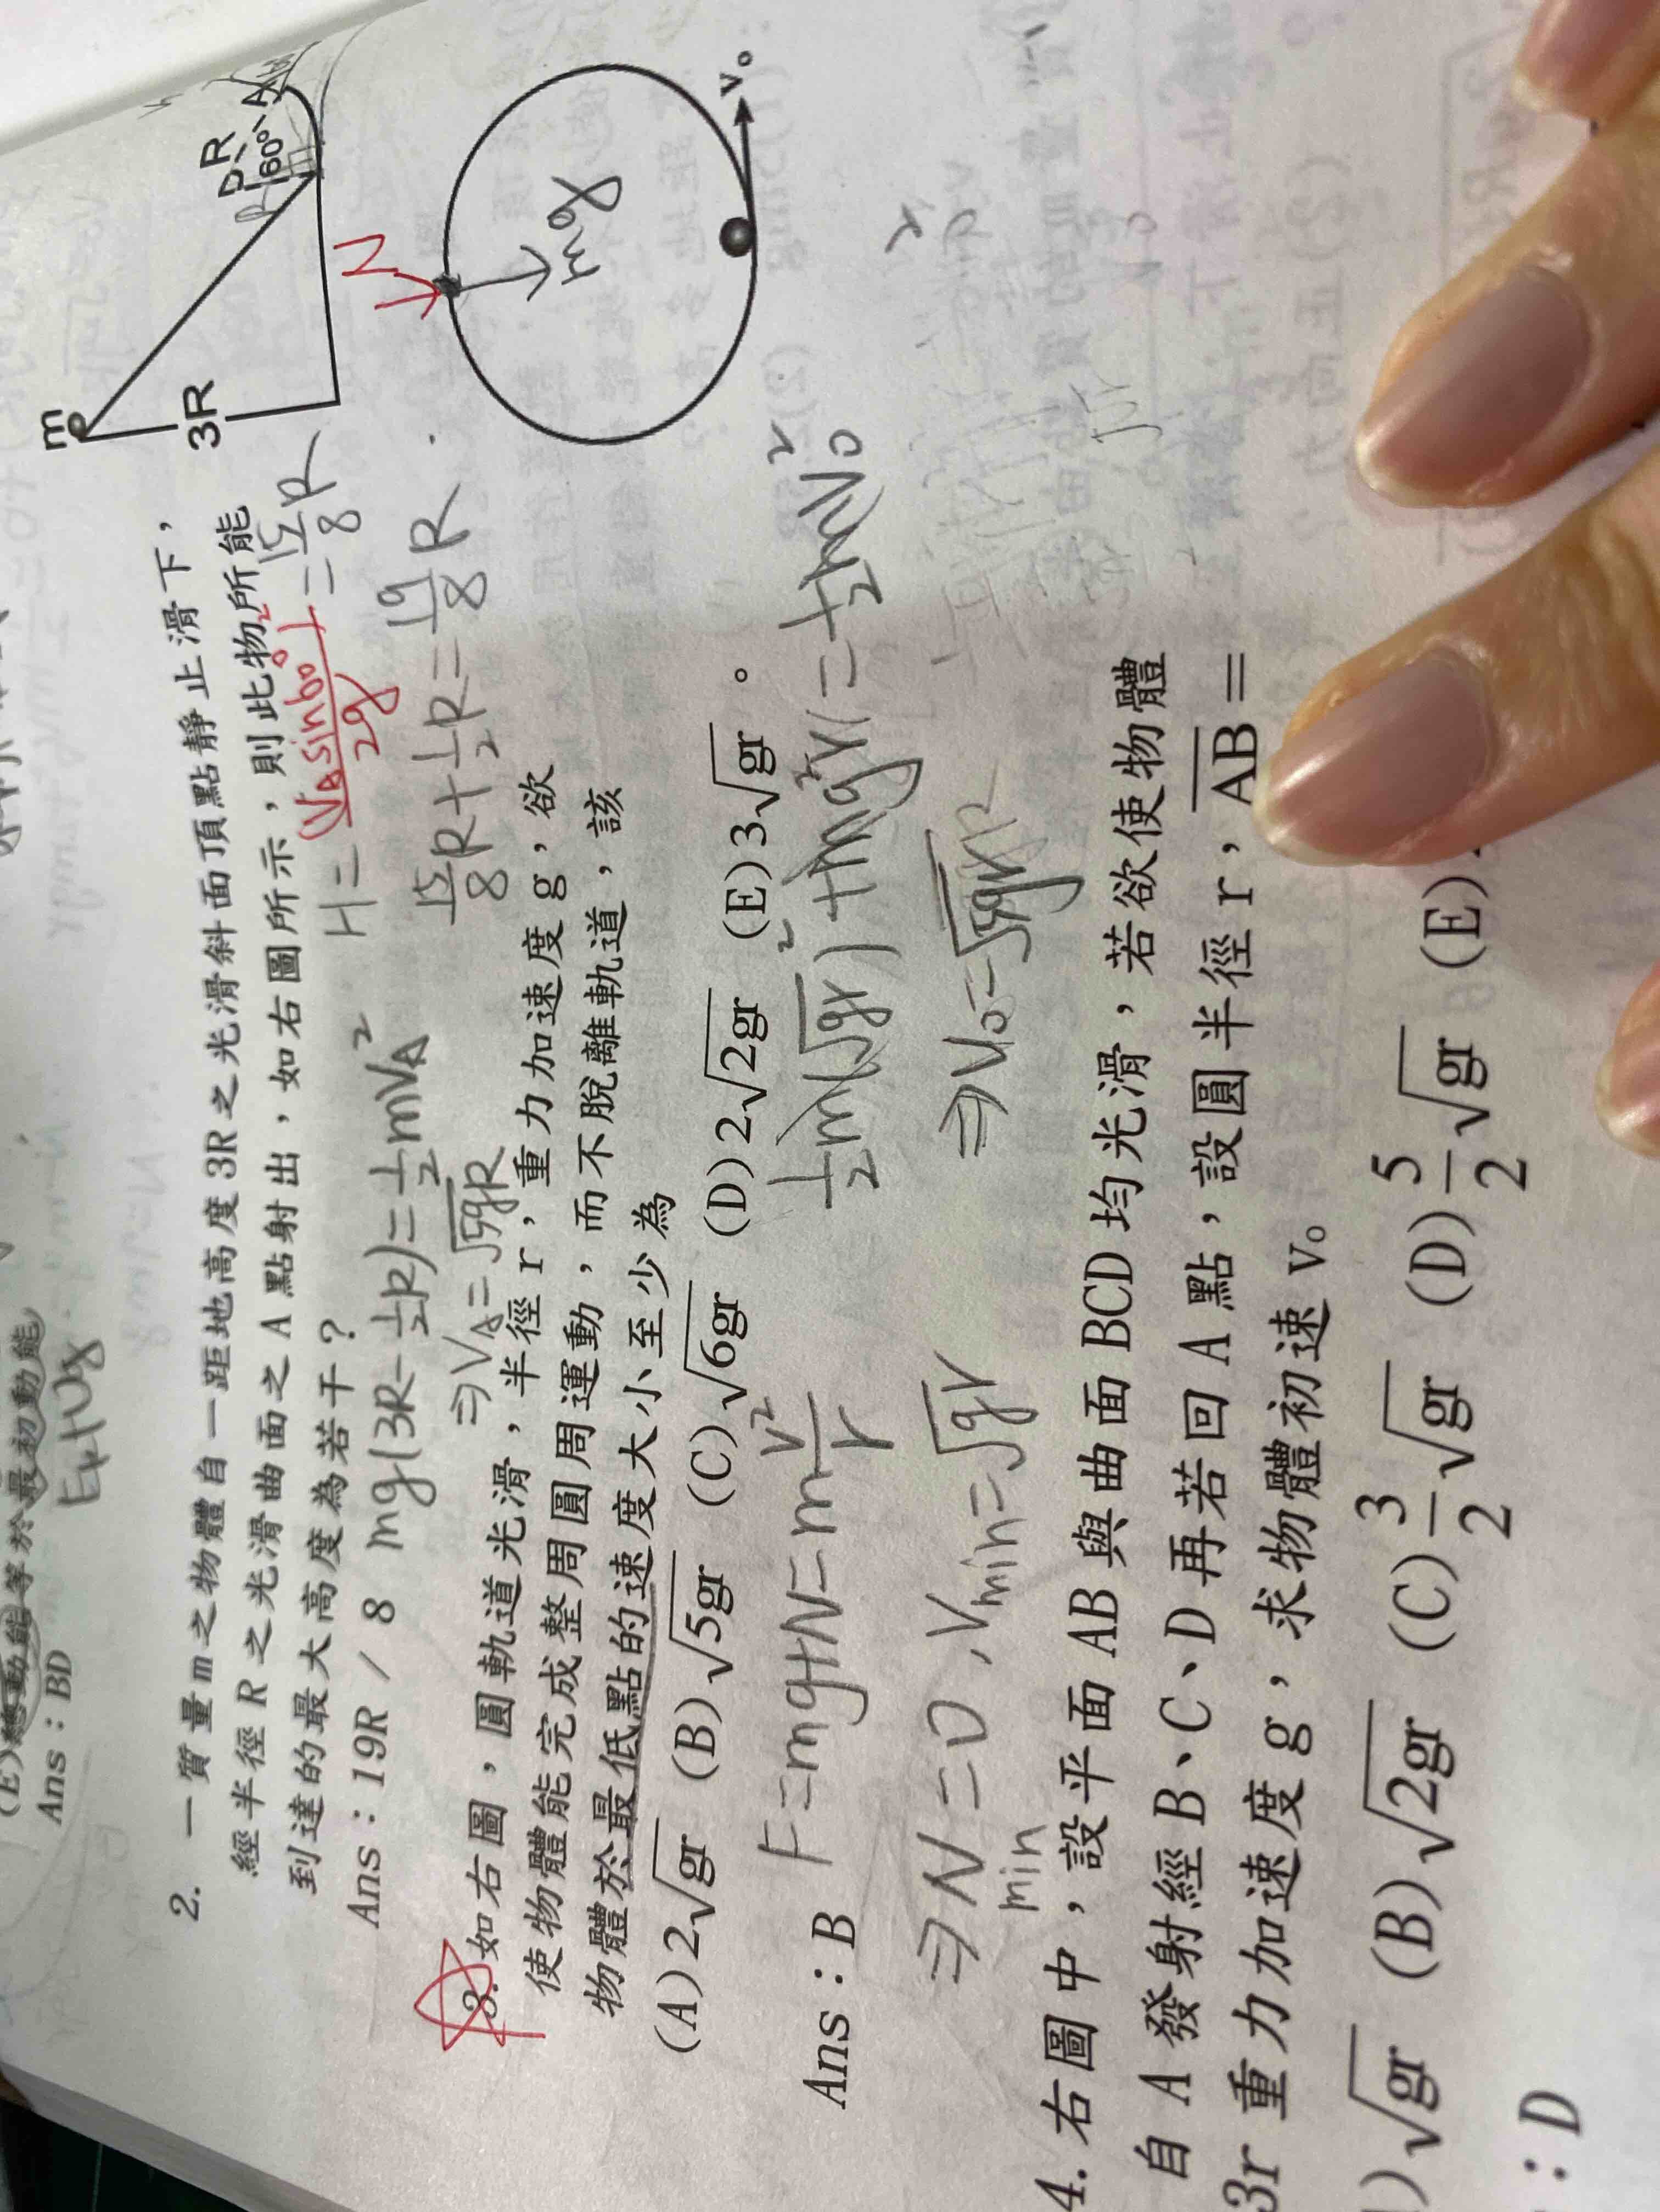 (E)總動能等於最初動能
Ek+Ug
Ans：BD
2. 一質量m之物體自一距地高度3R之光滑斜面頂點靜止滑下，
經半徑 R 之光滑曲面之 A 點射出，如右圖所示，則此物所能
到達的最大高度為若干？
Ans：19R / 8
mg(3R-1/2R)=1/2mVA²
⇒VA=√5gR
H=(VAsin60°)²/2g=15/8R
15/8R+1/2R=19/8R
m
3R
R
60°
A
3. 如右圖，圓軌道光滑，半徑 r，重力加速度g，欲
使物體能完成整周圓周運動，而不脫離軌道，該
物體於最低點的速度大小至少為
(A) 2√gr (B) √5gr (C) √6gr (D) 2√2gr (E) 3√gr 。
N
mg
v₀
Ans：B
F=mg+N=m v²/r
⇒Nmin=0，Vmin=√gr
1/2m(√gr)²+mg2r=1/2mV₀²
⇒V₀=√5gr
4. 右圖中，設平面 AB 與曲面 BCD 均光滑，若欲使物體
自 A 發射經 B、C、D 再若回 A 點，設圓半徑 r，AB =
3r 重力加速度 g，求物體初速 v₀
) √gr (B) √2gr (C) 3/2 √gr (D) 5/2 √gr (E)
: D